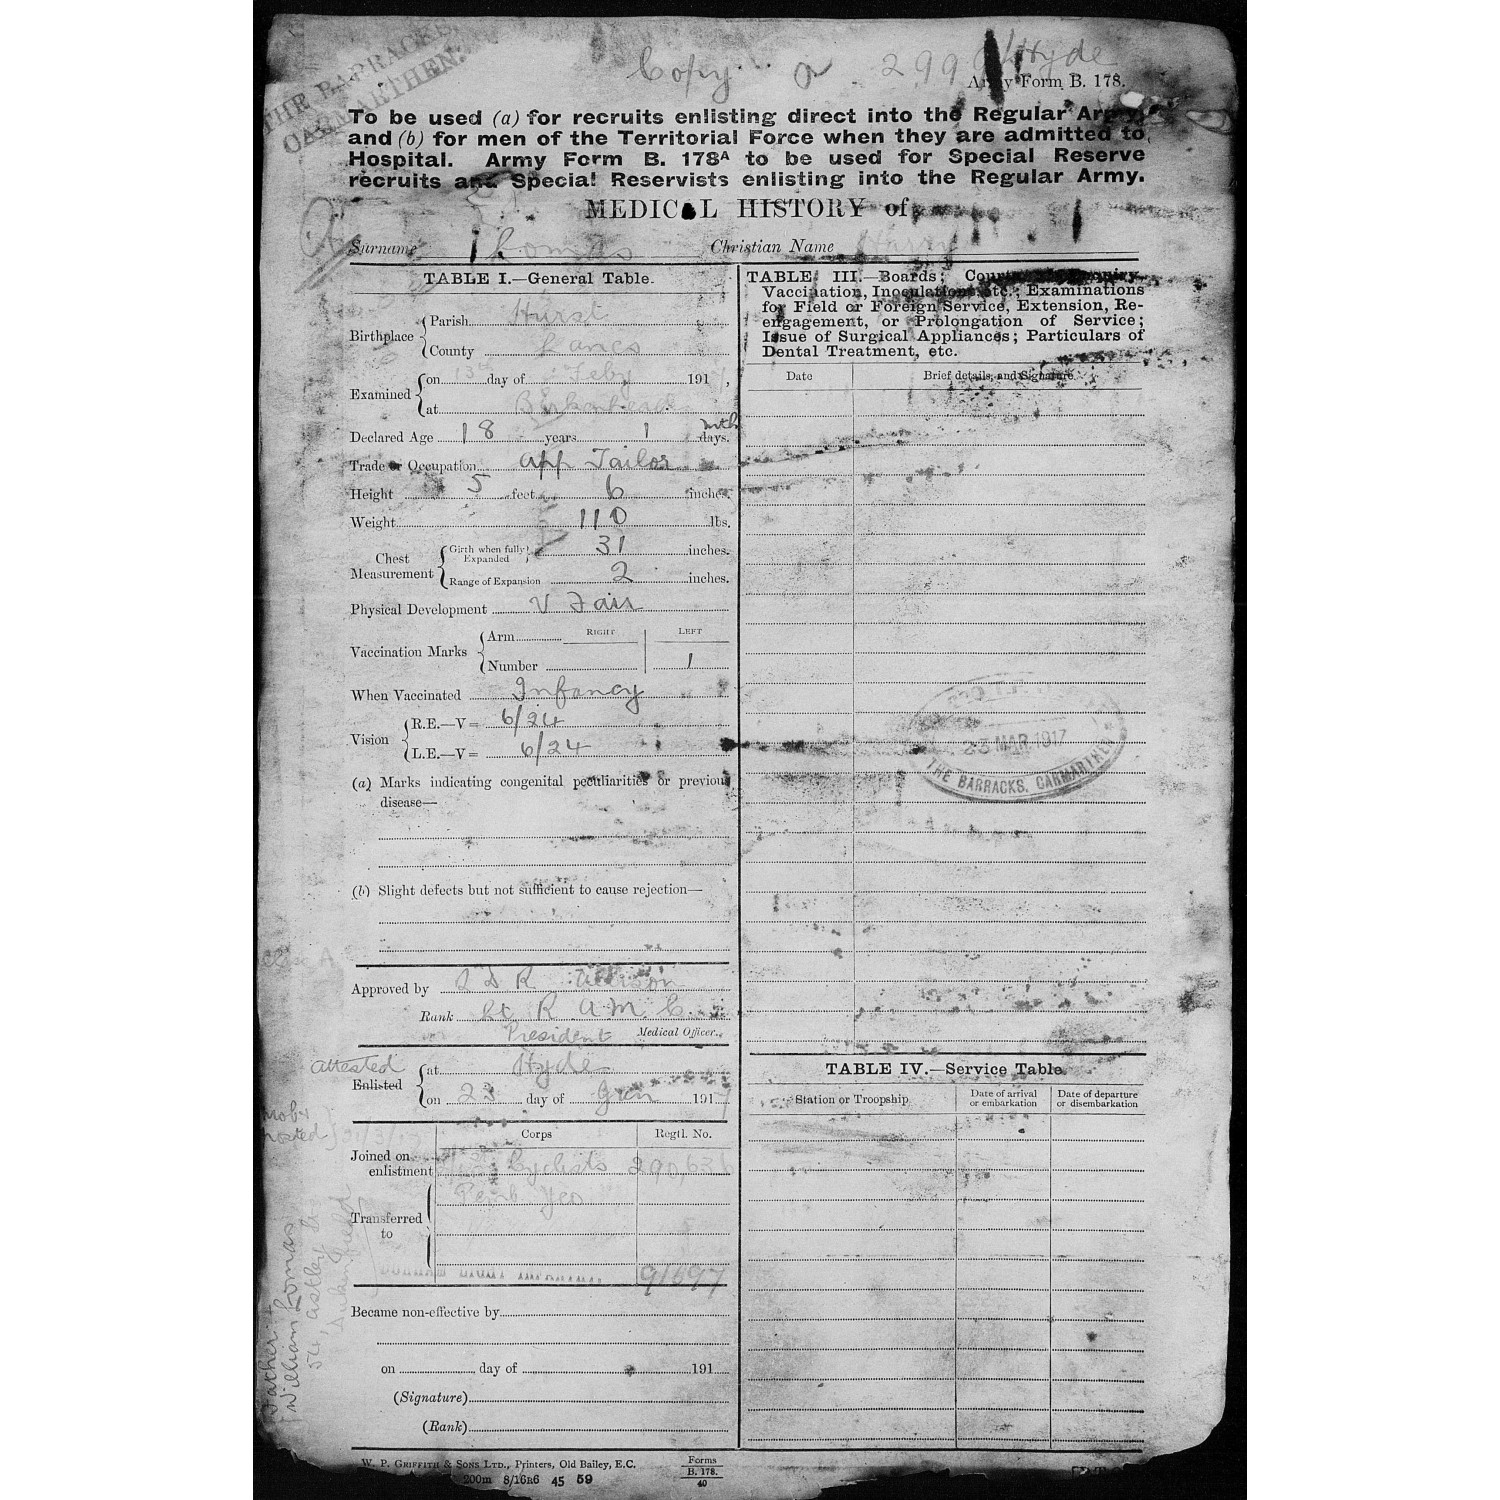 THE BARRACKS,
CARMARTHEN.
Copy 299 Hyde
Army Form B. 178.
To be used (a) for recruits enlisting direct into the Regular Army,
and (b) for men of the Territorial Force when they are admitted to
Hospital. Army Form B. 178A to be used for Special Reserve
recruits and Special Reservists enlisting into the Regular Army.
MEDICAL HISTORY of
Surname Lomas Christian Name Harry
TABLE I.—General Table.
Birthplace
Parish Hurst
County Lancs
Examined
on day of Feby 1917,
at Birkenhead
Declared Age 18 years 1 mth days.
Trade or Occupation App Tailor
Height 5 feet 6 inches.
Weight 110 lbs.
Chest Measurement
Girth when fully Expanded 31 inches.
Range of Expansion 2 inches.
Physical Development V Fair
Vaccination Marks
Arm RIGHT LEFT
Number 1
When Vaccinated Infancy
Vision
R.E.—V= 6/24
L.E.—V= 6/24
(a) Marks indicating congenital peculiarities or previous
disease—
(b) Slight defects but not sufficient to cause rejection—
Approved by
Rank R A M C
President Medical Officer.
attested
Enlisted
at Hyde
on 23 day of Jan 1917
Mob &
posted
Corps Regtl. No.
Joined on
enlistment Cyclists
Pemb Yeo
Transferred
to
91697
Became non-effective by
on day of 191
(Signature)
(Rank)
Father +
William Lomas
54, Astley
TABLE III.—Boards; Courts of Enquiry,
Vaccination, Inoculations, etc.; Examinations
for Field or Foreign Service, Extension, Re-
engagement, or Prolongation of Service;
Issue of Surgical Appliances; Particulars of
Dental Treatment, etc.
Date Brief details, and Signature.
23 MAR. 1917
THE BARRACKS. CARMARTHEN
TABLE IV.—Service Table.
Station or Troopship Date of arrival or embarkation Date of departure or disembarkation
W. P. GRIFFITH & SONS LTD., Printers, Old Bailey, E.C.
200m 8/16R6 45 59
Forms
B. 178.
40